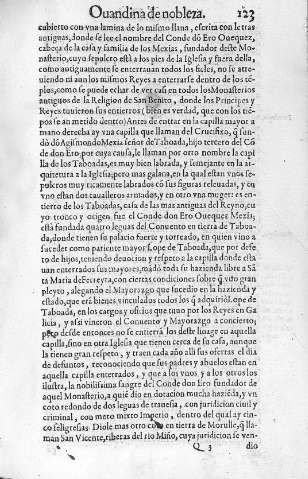 Ouandina de nobleza. 123
cubierto con vna lamina de lo mismo llana, escrita con letras
antiguas, donde se lee el nombre del Conde dō Ero Ouequez,
cabeça de la casa y familia de los Mexias, fundador deste Mo-
nasterio, cuyo sepulcro està a los pies de la Iglesia y fuera della,
como antiguamente se enterrauan todos los fieles, no se atre-
uiendo ni aun los mismos Reyes a enterrarse dentro de los tē-
plos, como se puede echar de ver casi en todos los Monasterios
antiguos de la Religion de San Benito, donde los Principes y
Reyes tuuieron sus entierros (bien es verdad, que con los tiē-
pos se an metido dentro) Antes de entrar en la capilla mayor a
mano derecha ay vna capilla que llaman del Crucifixo, q̄ fun-
dò dō Agismondo Mexia señor de Taboada, hijo tercero del Cō
de don Ero: por cuya causa, le llaman por otro nombre la capi
lla de los Taboadas, es muy bien labrada, y semejante en la ar-
quitetura a la Iglesia, pero mas galana, en la qual estan vnos se-
pulcros muy ricamente labrados cō sus figuras releuadas, y en
vno estan dos caualleros armados, y en otro vna muger: es en-
tierro de los Taboadas, casa de las mas antiguas del Reyno, cu
yo tronco y origen fue el Conde don Ero Ouequez Mexia;
està fundada quatro leguas del Conuento en tierra de Taboa-
da, donde tienen su palacio fuerte y torreado, en quien vino a
suceder como pariente mayor Lope de Taboada, que por defe
to de hijos, teniendo deuocion y respeto a la capilla donde esta
uan enterrados sus mayores, mādò toda su hazienda libre a Sā
ta Maria de Ferreyra, con ciertas condiciones sobre q̄ vuo gran
pleyto, alegando el Mayorazgo que sucedio en la hazienda y
estado, que erā bienes vinculados todos los q̄ adquiriò Lope de
Taboada, en los cargos y oficios que tuuo por los Reyes en Ga
licia, y assi vinieron el Conuento y Mayorazgo a concierto;
pero desde entonces no se entierrā los deste linage en aquella
capilla, sino en otra Iglesia que tienen cerca de su casa, aunque
la tienen gran respeto, y traen cada año alli sus ofertas el dia
de difuntos, reconociendo que sus padres y abuelos estan en
aquella capilla enterrados, y que a los vnos, y a los otros los
ilustra, la nobilissima sangre del Conde don Ero fundador de
aquel Monasterio, a quiē dio en dotacion mucha haziēda, y vn
coto redondo de dos leguas de trauesia, con juridicion ciuil y
criminal, con mero mixto Imperio, dentro del qual ay cin-
co feligresias: Diole mas otro coto en tierra de Morulle, q̄ lla-
man San Vicente, riberas del rio Miño, cuya juridicion se ven-
Q 3 dio